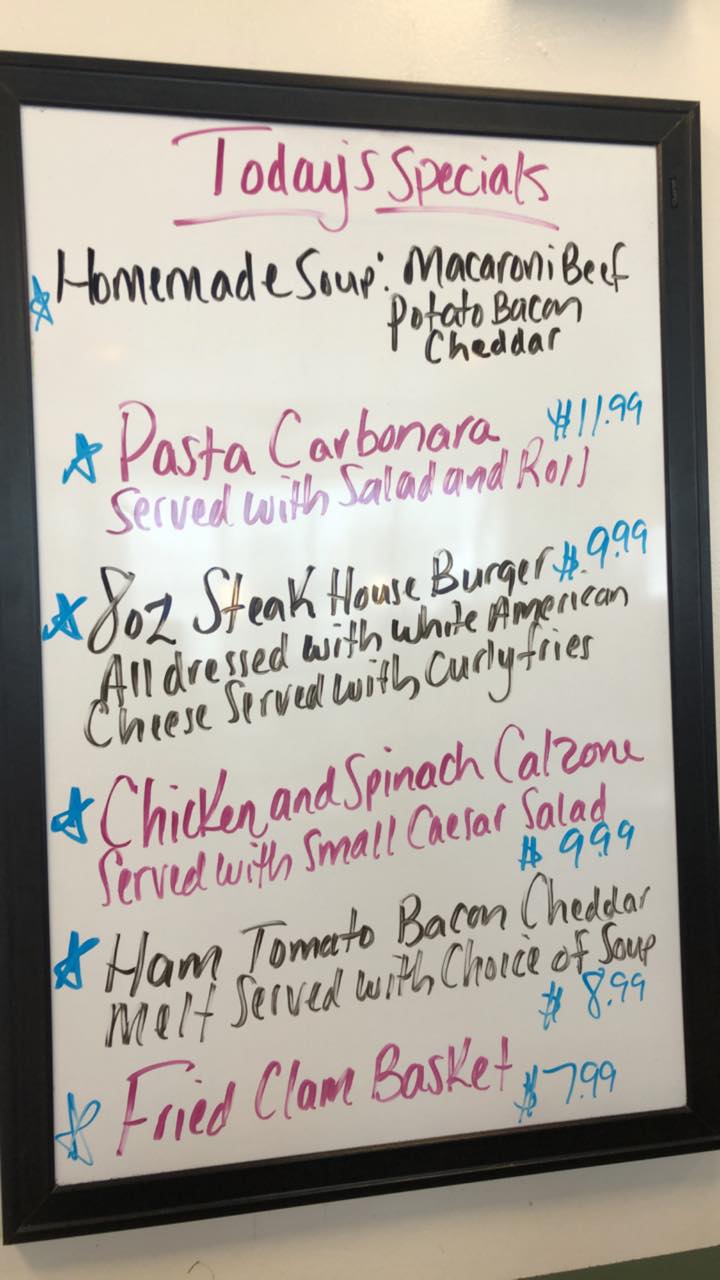 Today's Specials
Homemade Soup: Macaroni Beef
Potato Bacon
Cheddar
Pasta Carbonara $11.99
Served with Salad and Roll
8oz Steak House Burger $9.99
All dressed with white American
Cheese Served with Curly fries
Chicken and Spinach Calzone
Served with Small Caesar Salad
$9.99
Ham Tomato Bacon Cheddar
Melt Served with Choice of Soup
$8.99
Fried Clam Basket $7.99